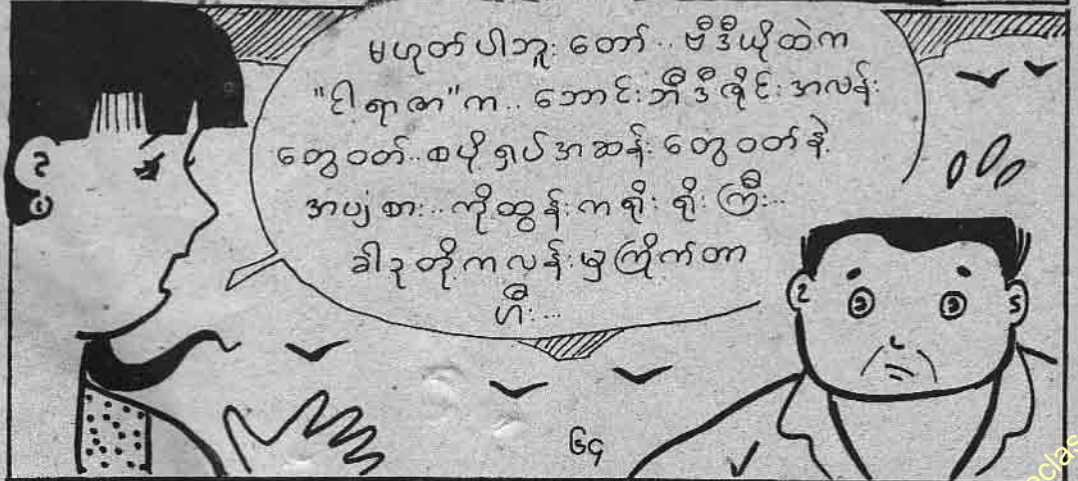 မဟုတ်ပါဘူးတော်.. ဗီဒီယိုထဲက
"ငါ့ရာဇာ"က.. ဘောင်းဘီဒီဇိုင်းအလန်း
တွေဝတ်..စပို့ရှပ်အဆန်းတွေဝတ်နဲ့
အပျံစား.. ကိုထွန်းကရိုးရိုးကြီး...
ခါဒုတို့ကလန်းမှကြိုက်တာ
ဟီး...
၆၄